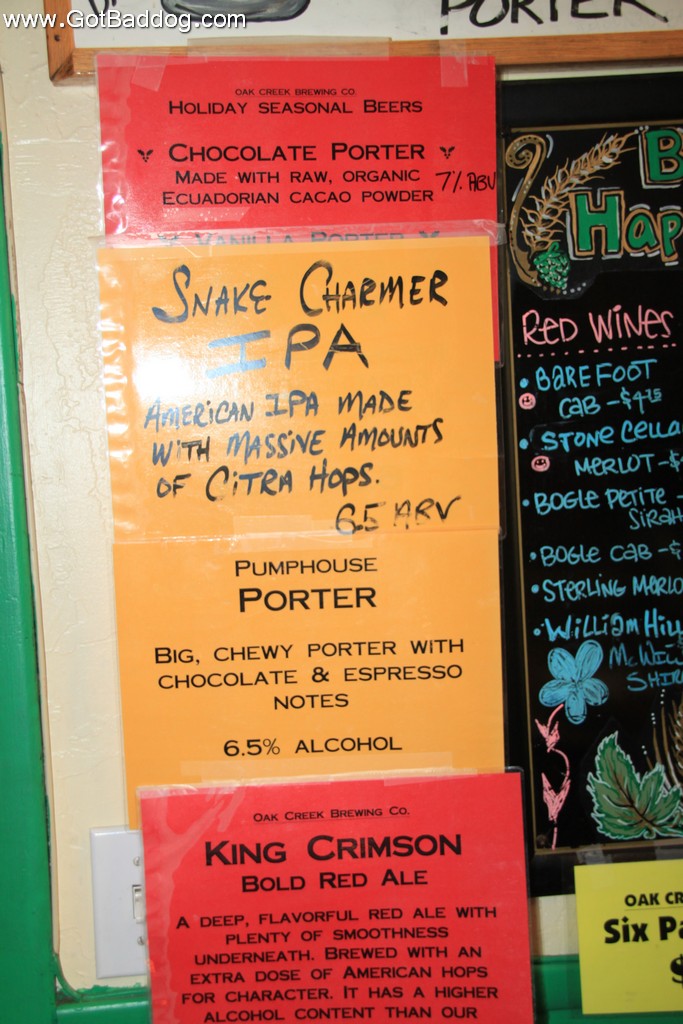 www.GotBaddog.com
PORTER
OAK CREEK BREWING CO.
HOLIDAY SEASONAL BEERS
CHOCOLATE PORTER
MADE WITH RAW, ORGANIC
ECUADORIAN CACAO POWDER
7% ABV
VANILLA PORTER
SNAKE CHARMER
IPA
AMERICAN IPA MADE
WITH MASSIVE AMOUNTS
OF CITRA HOPS.
6.5 ABV
PUMPHOUSE
PORTER
BIG, CHEWY PORTER WITH
CHOCOLATE & ESPRESSO
NOTES
6.5% ALCOHOL
OAK CREEK BREWING CO.
KING CRIMSON
BOLD RED ALE
A DEEP, FLAVORFUL RED ALE WITH
PLENTY OF SMOOTHNESS
UNDERNEATH. BREWED WITH AN
EXTRA DOSE OF AMERICAN HOPS
FOR CHARACTER. IT HAS A HIGHER
ALCOHOL CONTENT THAN OUR
B
Hap
RED WINES
• BAREFOOT
CAB - $4.75
• STONE CELLA
MERLOT - $
• BOGLE PETITE -
SIRAH
• BOGLE CAB - $
• STERLING MERLO
• WILLIAM HILL
McWIL
SHIR
OAK CR
Six Pa
$